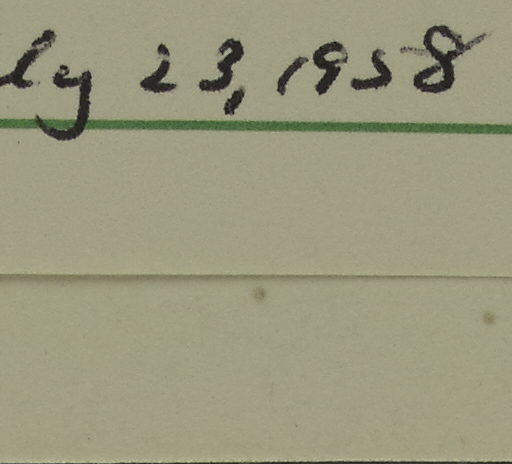 ly 23, 1958